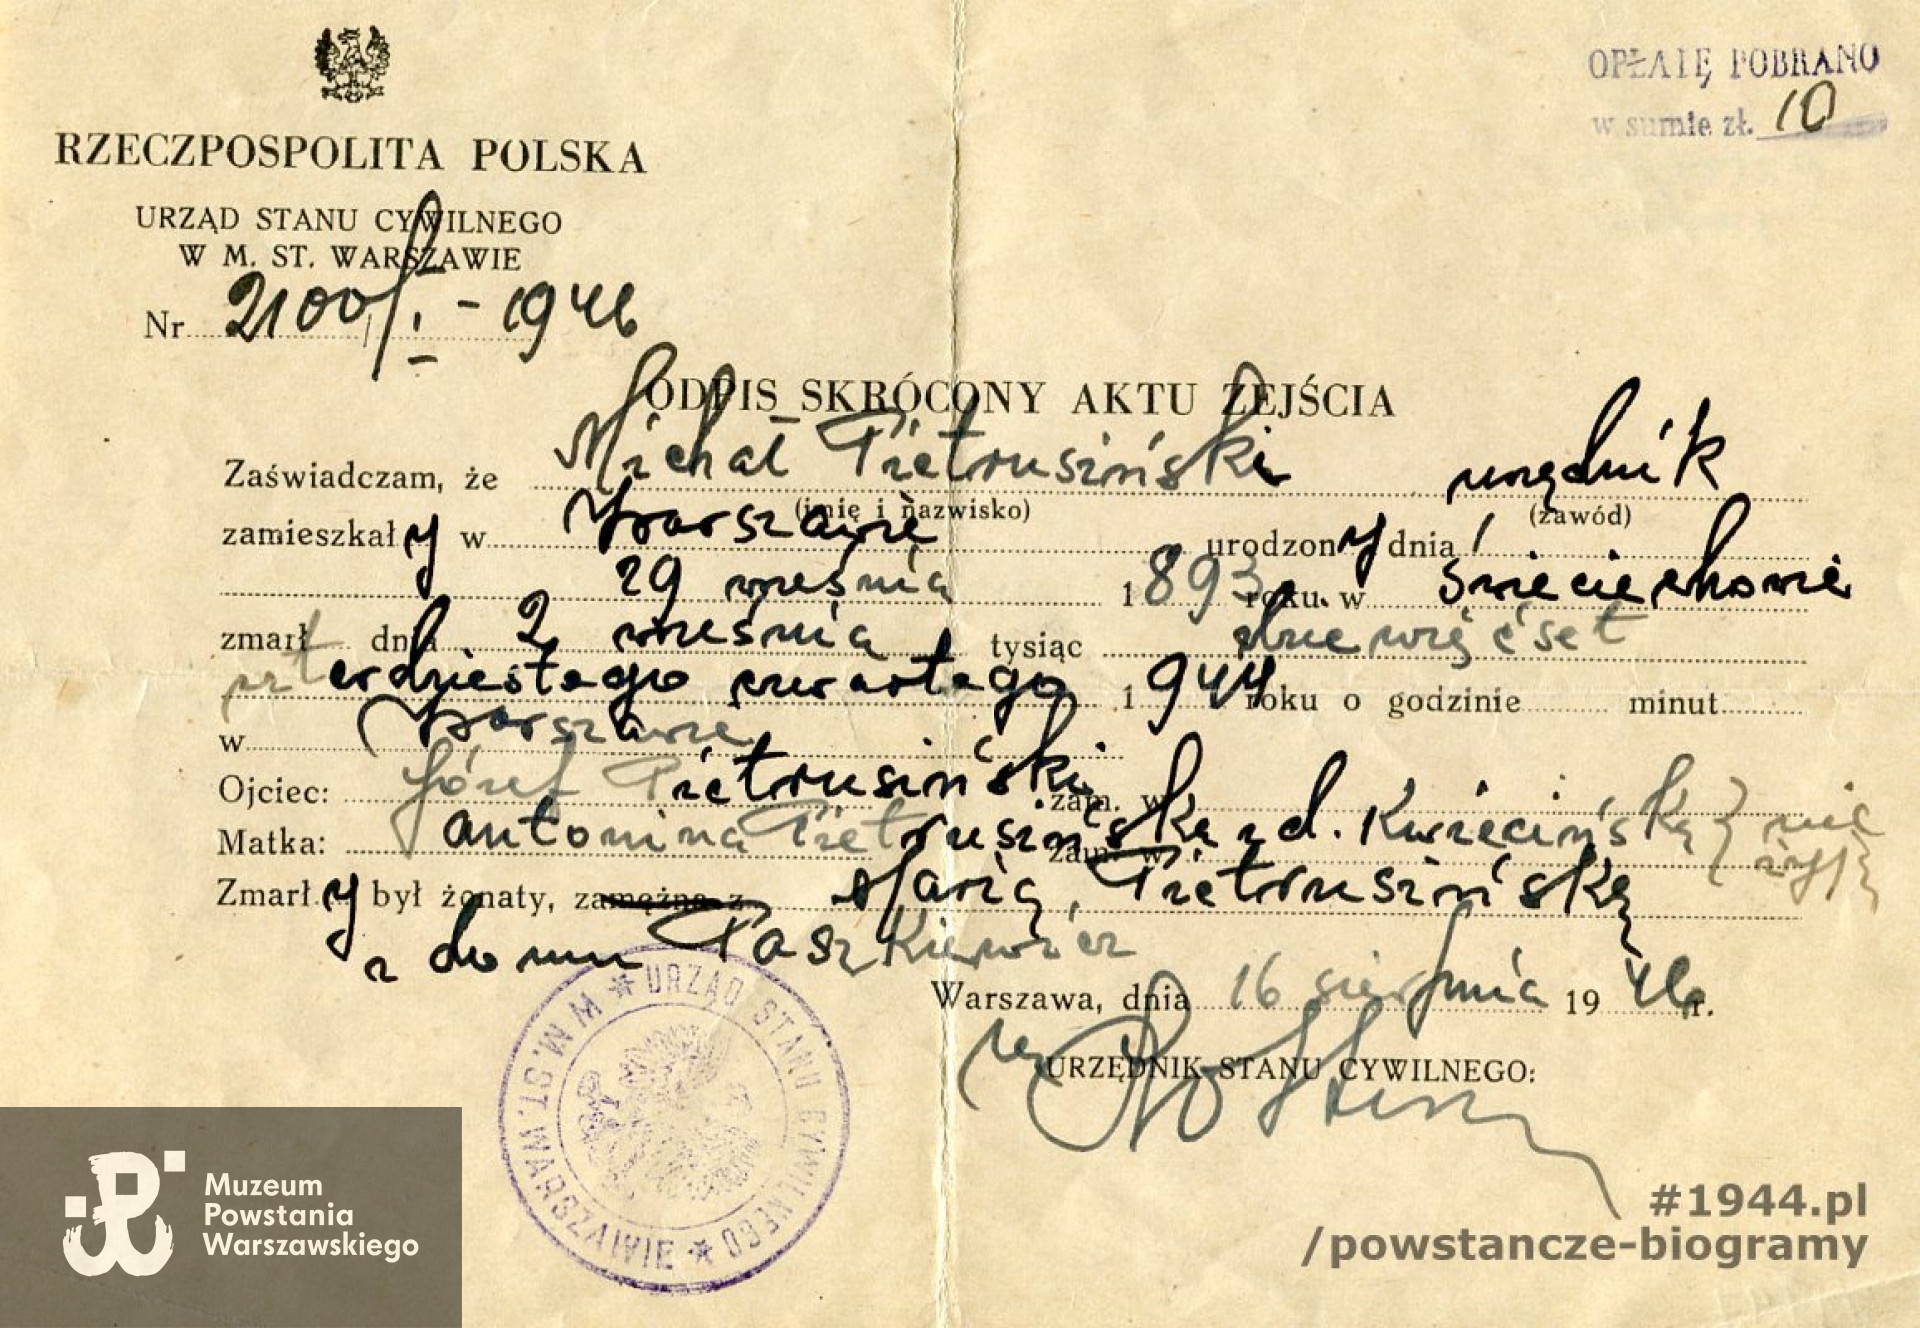 OPŁATĘ POBRANO
w sumie zł. 10
RZECZPOSPOLITA POLSKA
URZĄD STANU CYWILNEGO
W M. ST. WARSZAWIE
Nr 2100/I - 1946
ODPIS SKRÓCONY AKTU ZEJŚCIA
Zaświadczam, że Michał Pietrusiński urzędnik
(imię i nazwisko) (zawód)
zamieszkały w Warszawie urodzony dnia
29 września 1893 roku w Świeciechowie
zmarł dnia 2 września tysiąc dziewięćset
czterdziestego czwartego 1944 roku o godzinie minut
w Warszawie
Ojciec: Józef Pietrusiński zam. w
Matka: Antonina Pietrusińska z d. Kwiecińska nie żyją zam. w
Zmarły był żonaty, zamężna z Marią Pietrusińską
z domu Paszkiewicz
Warszawa, dnia 16 sierpnia 1946 r.
URZĘDNIK STANU CYWILNEGO:
URZĄD STANU CYWILNEGO * W M. ST. WARSZAWIE *
Muzeum
Powstania
Warszawskiego
#1944.pl
/powstancze-biogramy